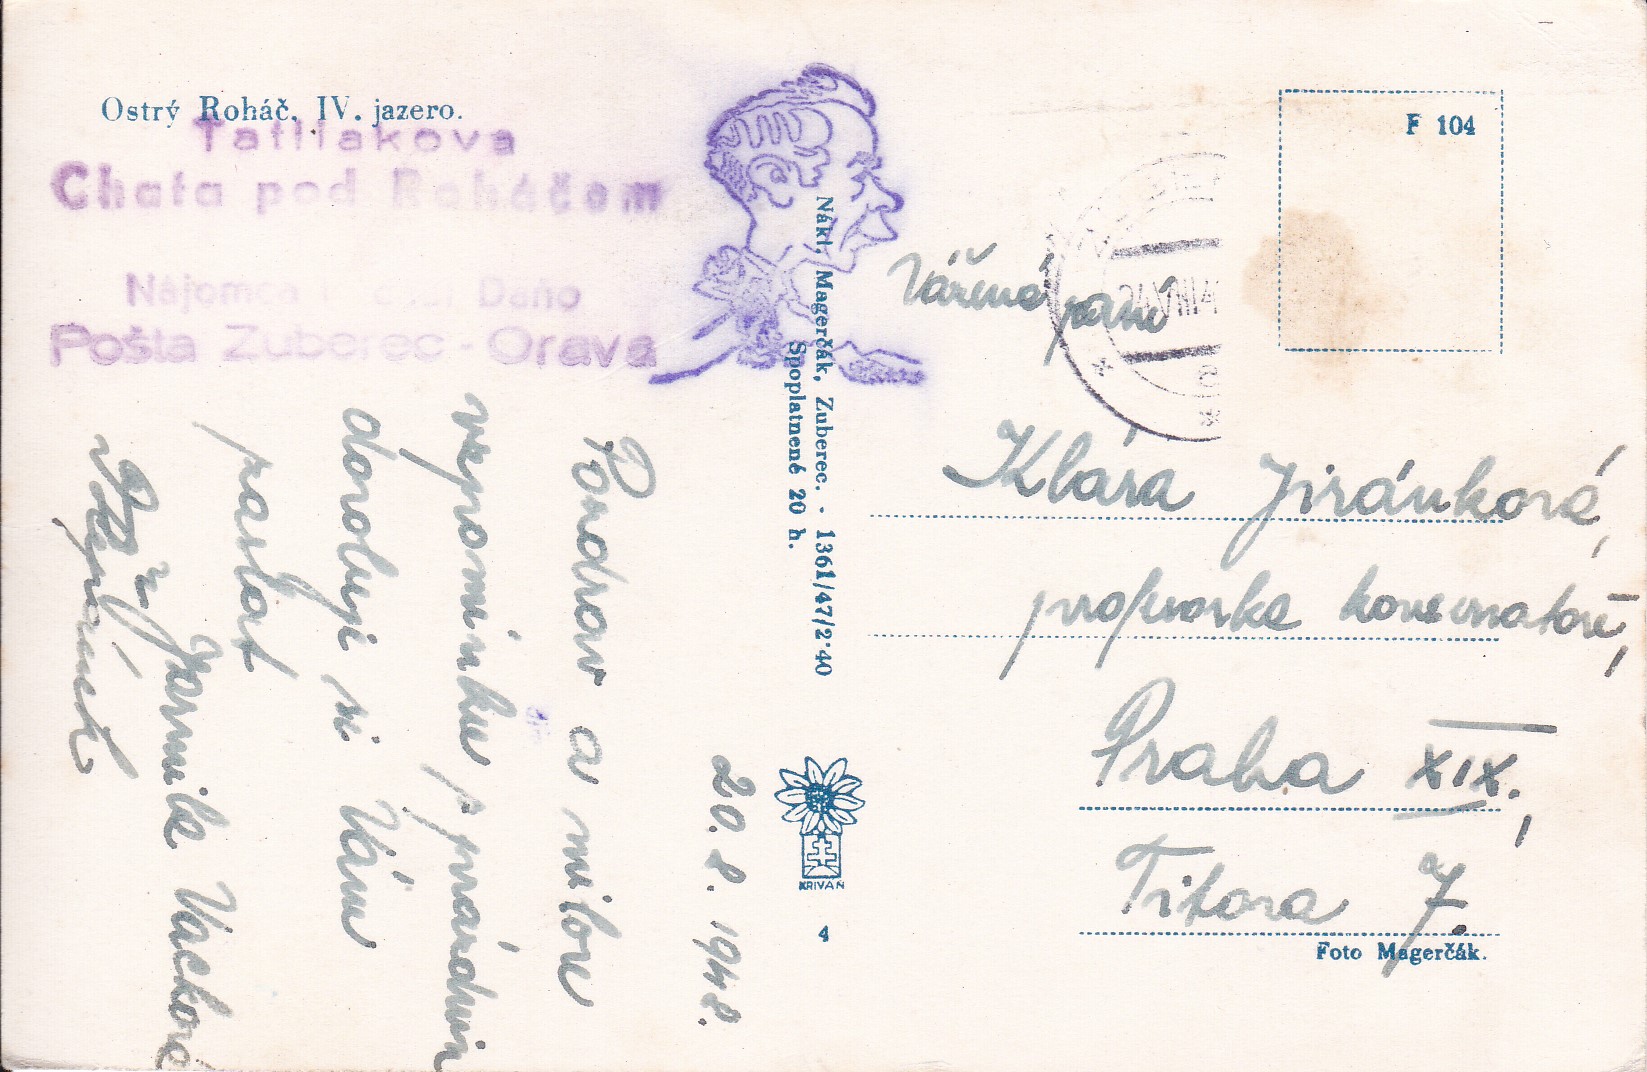 Ostrý Roháč. IV. jazero.
Tatliakova
Chata pod Roháčom
Nájomca Daňo
Pošta Zuberec - Orava
F 104
Vážená paní
Klára Jiránková,
profesorka konservatoře,
Praha XIX.,
Titova 7.
Foto Magerčák.
Nákl. Magerčák, Zuberec. - 1361/47/2·40
Spoplatnené 20 h.
KRIVÁŇ
4
20. 8. 1948.
Pozdrav a milou
vzpomínku s prázdnin
dovoluji si Vám
poslat
Jarmila Vacková